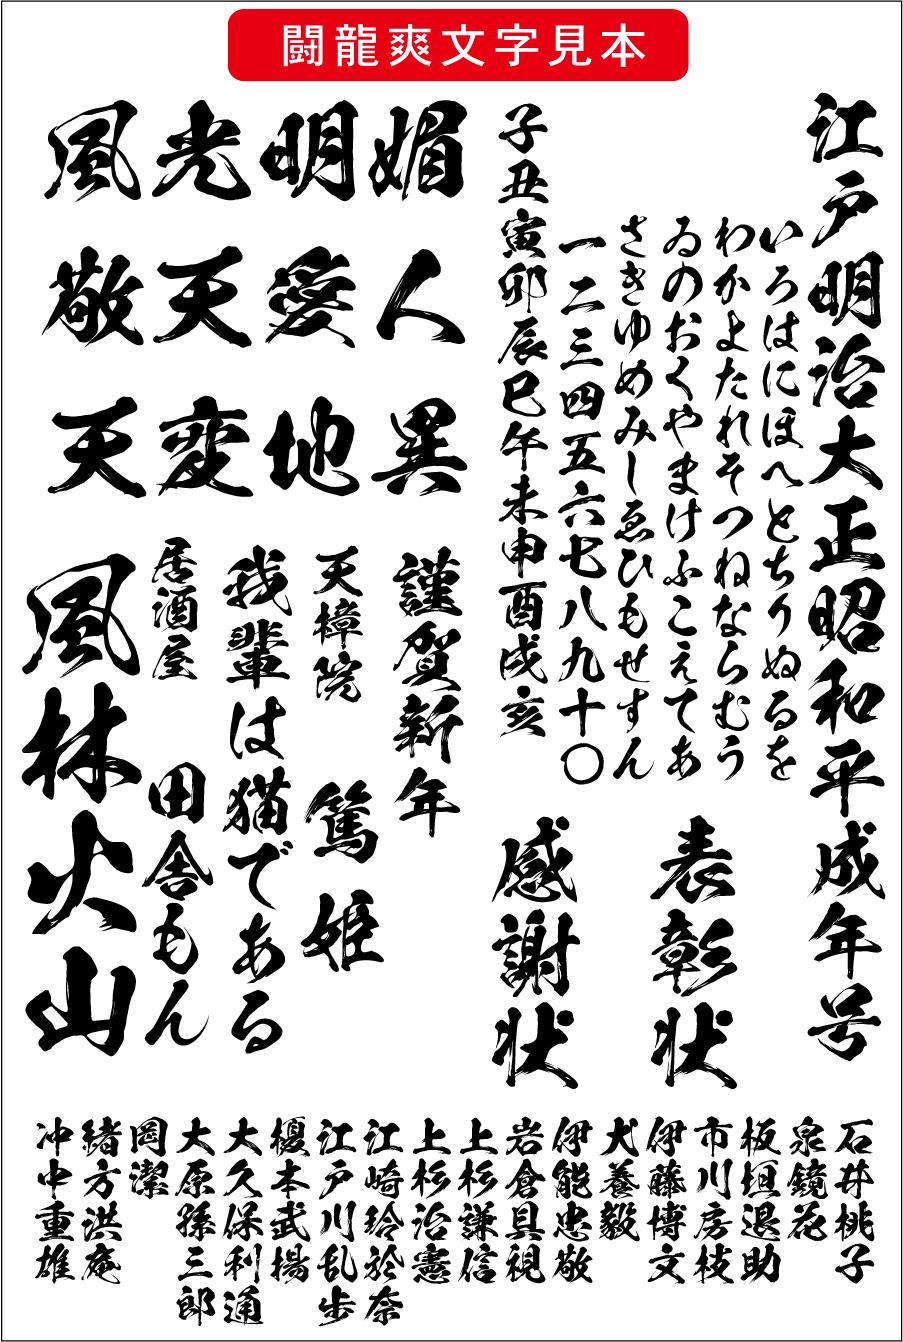 闘龍爽文字見本
江戸明治大正昭和平成年号
いろはにほへとちりぬるを
わかよたれそつねならむう
ゐのおくやまけふこえてあ
さきゆめみしゑひもせすん
一二三四五六七八九十〇
子丑寅卯辰巳午未申酉戌亥
表彰状
感謝状
風光明媚
敬天愛人
天変地異
謹賀新年
天樟院
篤姫
我輩は猫である
居酒屋
田舎もん
風林火山
石井桃子
泉鏡花
板垣退助
市川房枝
伊藤博文
犬養毅
伊能忠敬
岩倉具視
上杉謙信
上杉治憲
江崎玲於奈
江戸川乱歩
榎本武揚
大久保利通
大原孫三郎
岡潔
緒方洪庵
沖中重雄